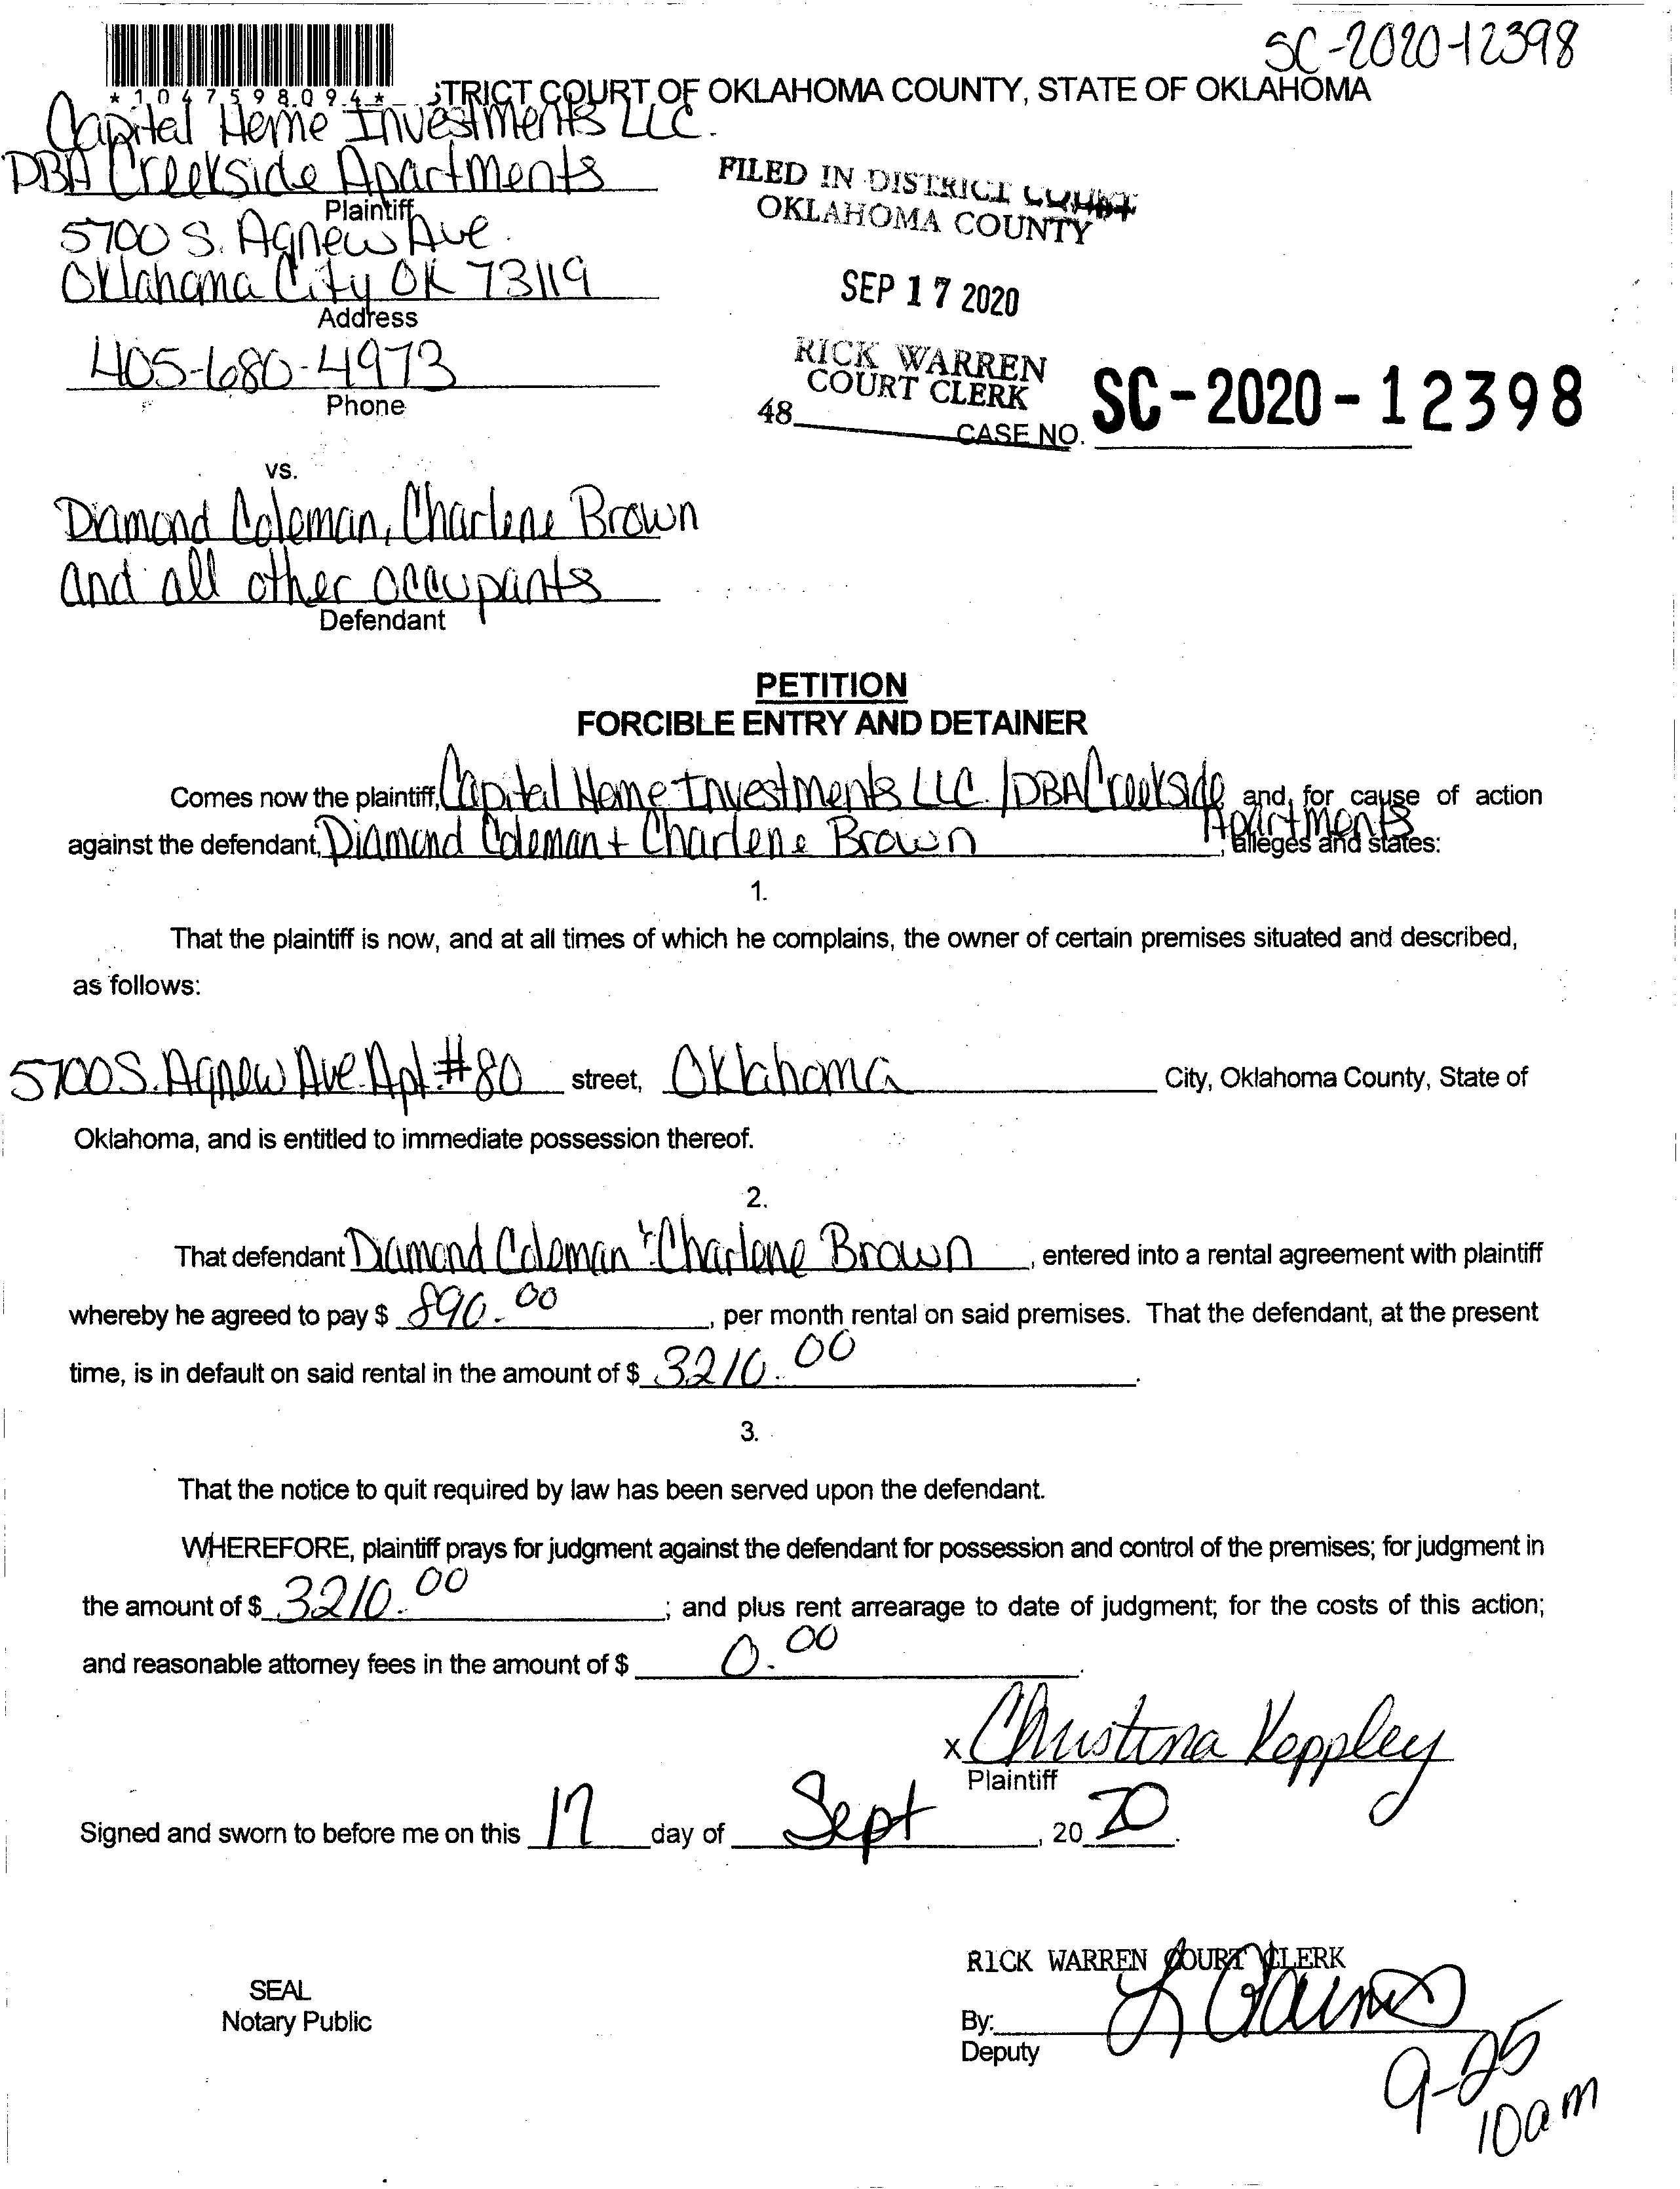 SC-2020-12398
*1047598094* STRICT COURT OF OKLAHOMA COUNTY, STATE OF OKLAHOMA
Capital Home Investments LLC.
DBA Creekside Apartments
Plaintiff
5700 S. Agnew Ave.
Oklahoma City OK 73119
Address
405-680-4973
Phone
FILED IN DISTRICT COURT
OKLAHOMA COUNTY
SEP 17 2020
RICK WARREN
COURT CLERK
48
CASE NO. SC-2020-12398
vs.
Diamond Coleman, Charlene Brown
and all other occupants
Defendant
PETITION
FORCIBLE ENTRY AND DETAINER
Comes now the plaintiff, Capital Home Investments LLC. /DBA Creekside Apartments and, for cause of action
against the defendant, Diamond Coleman + Charlene Brown, alleges and states:
1.
That the plaintiff is now, and at all times of which he complains, the owner of certain premises situated and described,
as follows:
5700 S. Agnew Ave. Apt. #80 street, Oklahoma City, Oklahoma County, State of
Oklahoma, and is entitled to immediate possession thereof.
2.
That defendant Diamond Coleman + Charlene Brown, entered into a rental agreement with plaintiff
whereby he agreed to pay $ 890.00, per month rental on said premises. That the defendant, at the present
time, is in default on said rental in the amount of $ 3210.00.
3.
That the notice to quit required by law has been served upon the defendant.
WHEREFORE, plaintiff prays for judgment against the defendant for possession and control of the premises; for judgment in
the amount of $ 3210.00; and plus rent arrearage to date of judgment; for the costs of this action;
and reasonable attorney fees in the amount of $ 0.00.
x Christina Keppley
Plaintiff
Signed and sworn to before me on this 17 day of Sept, 2020.
SEAL
Notary Public
RICK WARREN COURT CLERK
By:
Deputy
9-25
10am